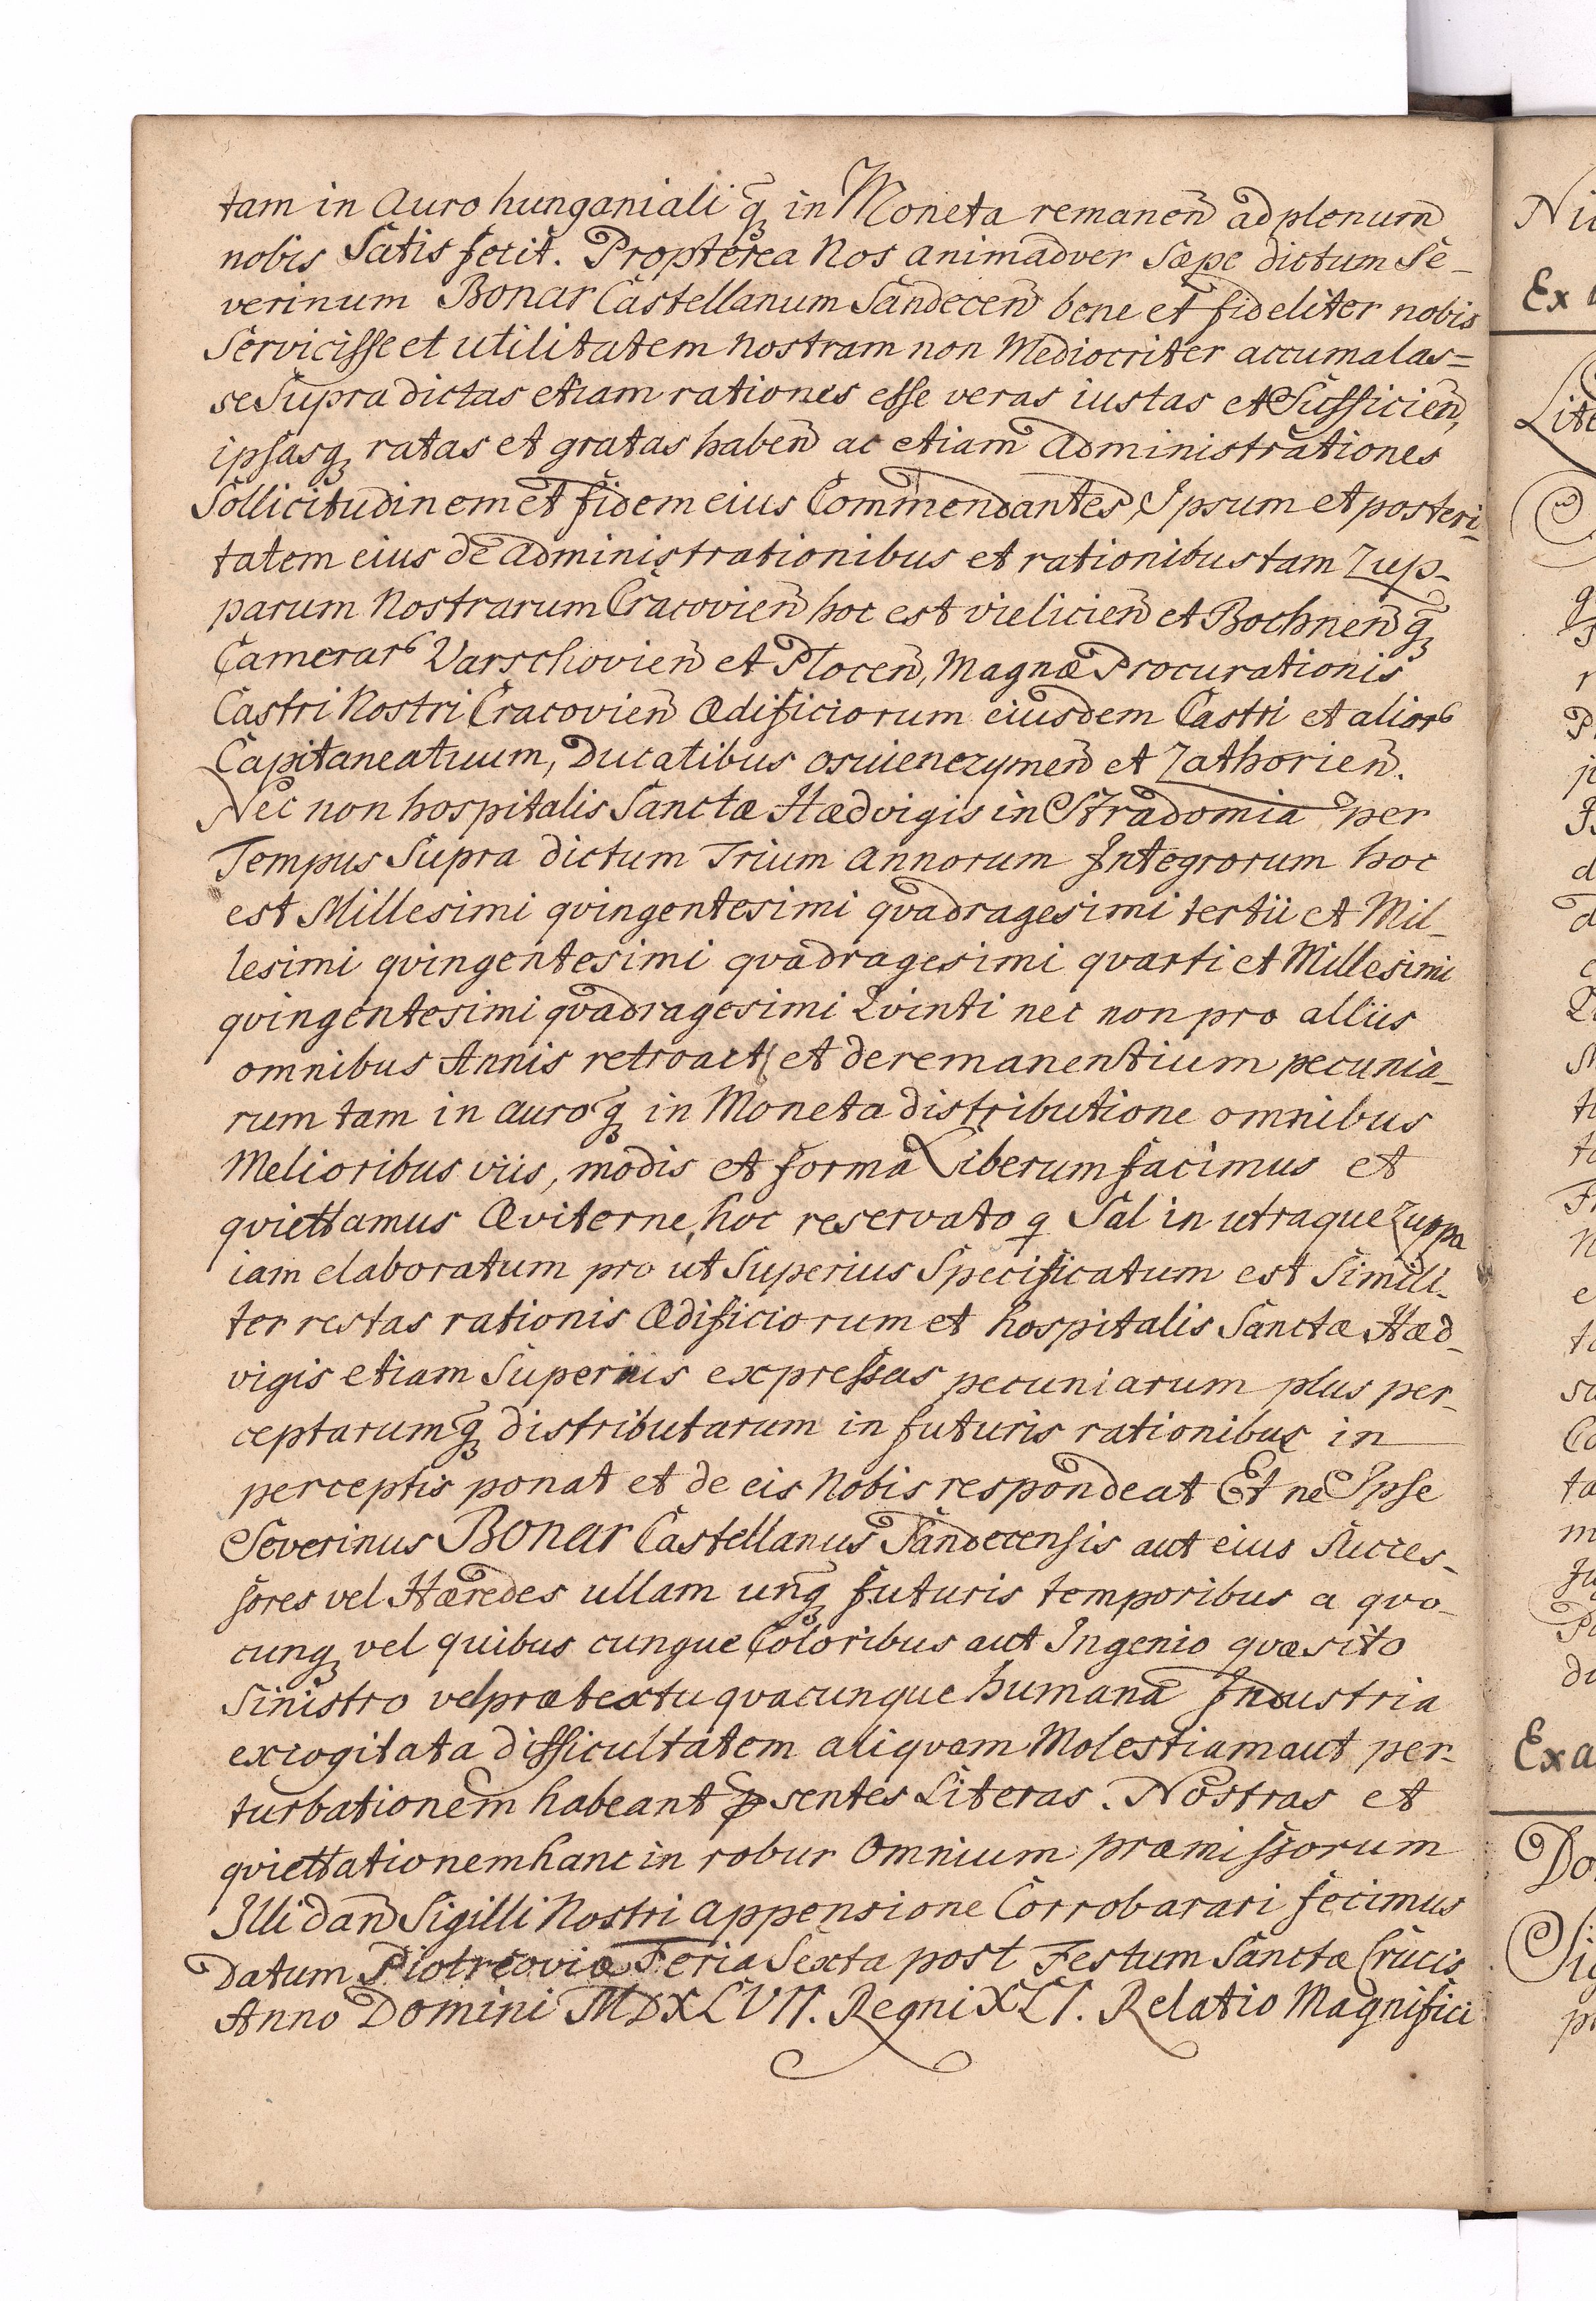 tam in Auro hunganiali q̃ꝫ in Moneta remanen̄ ad plenum
nobis Satis fecit. Propterea Nos animadver Sæpe dictum Se-
verinum Bonar Castellanum Sandecen̄ bene et fideliter nobis
Servicisse et utilitatem nostram non Mediocriter accumalas=
se Supra dictas etiam rationes esse veras iustas et Sufficien̄,
ipsasqꝫ ratas et gratas haben̄ ac etiam administrationes
Sollicitudinem et fidem eius Commendantes, Ipsum et posteri-
tatem eius de administrationibus et rationibus tam Zup-
parum Nostrarum Cracovien̄ hoc est vielicien̄ et Bochnen̄ q̃ꝫ
Camerar6 Varschovien̄ et Plocen̄, Magnæ Procurationis
Castri Nostri Cracovien̄ Ædificiorum eiusdem Castri et alior6
Capitaneatuum, Ducatibus osvienczymen̄ et Zathorien̄.
Nec non hospitalis Sanctæ Hædvigis in Stradomia per
Tempus Supra dictum Trium annorum Integrorum hoc
est Millesimi qvingentesimi qvadragesimi tertii et Mil-
lesimi qvingentesimi qvadragesimi qvarti et Millesimi
qvingentesimi qvadragesimi Qvinti nec non pro alliis
omnibus Annis retroact et de remanentium pecunia-
rum tam in auro q̃ꝫ in Moneta distributione omnibus
Melioribus viis, modis et forma Liberum facimus et
qviettamus Æviterne, hoc reservato q Sal in utraque Zuppa
iam elaboratum pro ut Superius Specificatum est Simili-
ter restas rationis Ædificiorum et hospitalis Sanctæ Hæd-
vigis etiam Superius expressas pecuniarum plus per-
ceptarum q̃ꝫ distributarum in futuris rationibus in
perceptis ponat et de eis Nobis respondeat Et ne Ipse
Severinus Bonar Castellanus Sandecensis aut eius Succes-
sores vel Hæredes ullam unq̃ꝫ futuris temporibus a qvo-
cunqꝫ vel quibus cunque Coloribus aut Ingenio qvæsito
Sinistro vel prætextu qvacunque humana Industria
excogitata difficultatem aliqvam Molestiam aut per-
turbationem habeant p̃sentes Literas. Nostras et
qviettationem hanc in robur Omnium præmissorum
Illi dan̄ Sigilli Nostri appensione Corrobarari fecimus
Datum Piotrcoviæ Feria Sexta post Festum Sanctæ Crucis
Anno Domini MDXLVII. Regni XLI. Relatio Magnifici